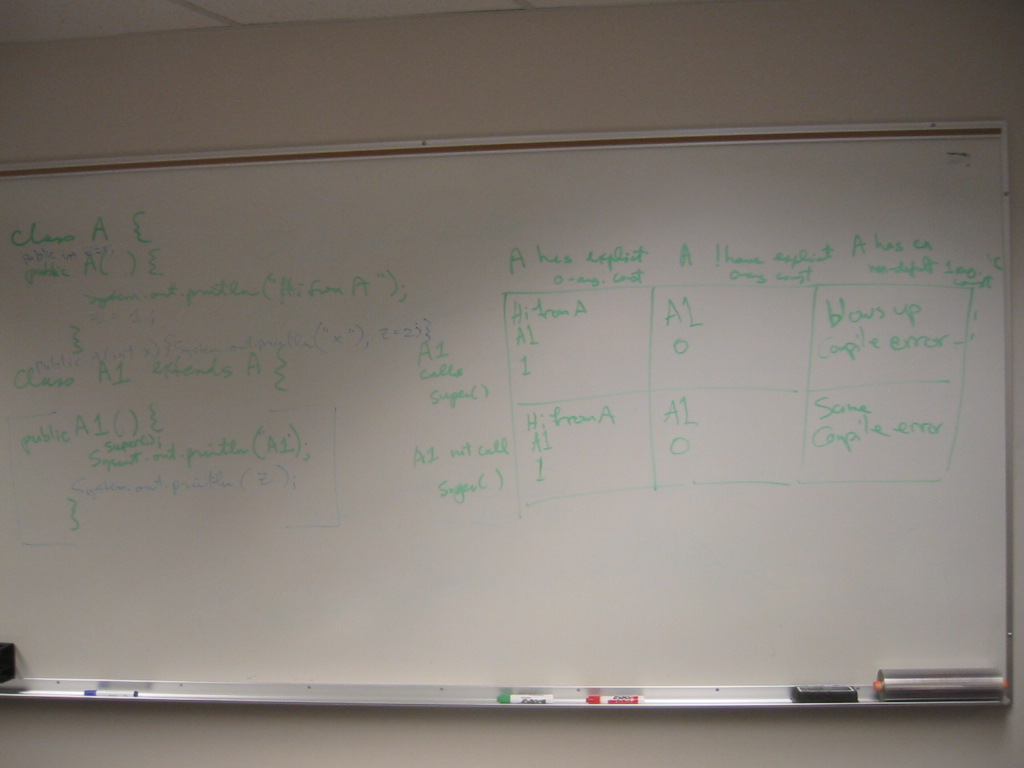 class A {
public int z;
public A( ) {
System.out.println("Hi from A");
z = 1;
}
public A(int x) {System.out.println("x"); z=2;}
class A1 extends A {
public A1() {
super();
System.out.println("A1");
System.out.println(z);
}
A has explicit
0-arg. const
A !have explicit
0-arg const
A has
non-default 1 arg
const
A1
calls
super()
Hi from A
A1
1
A1
0
blows up
compile error
A1 not call
super()
Hi from A
A1
1
A1
0
Same
Compile error